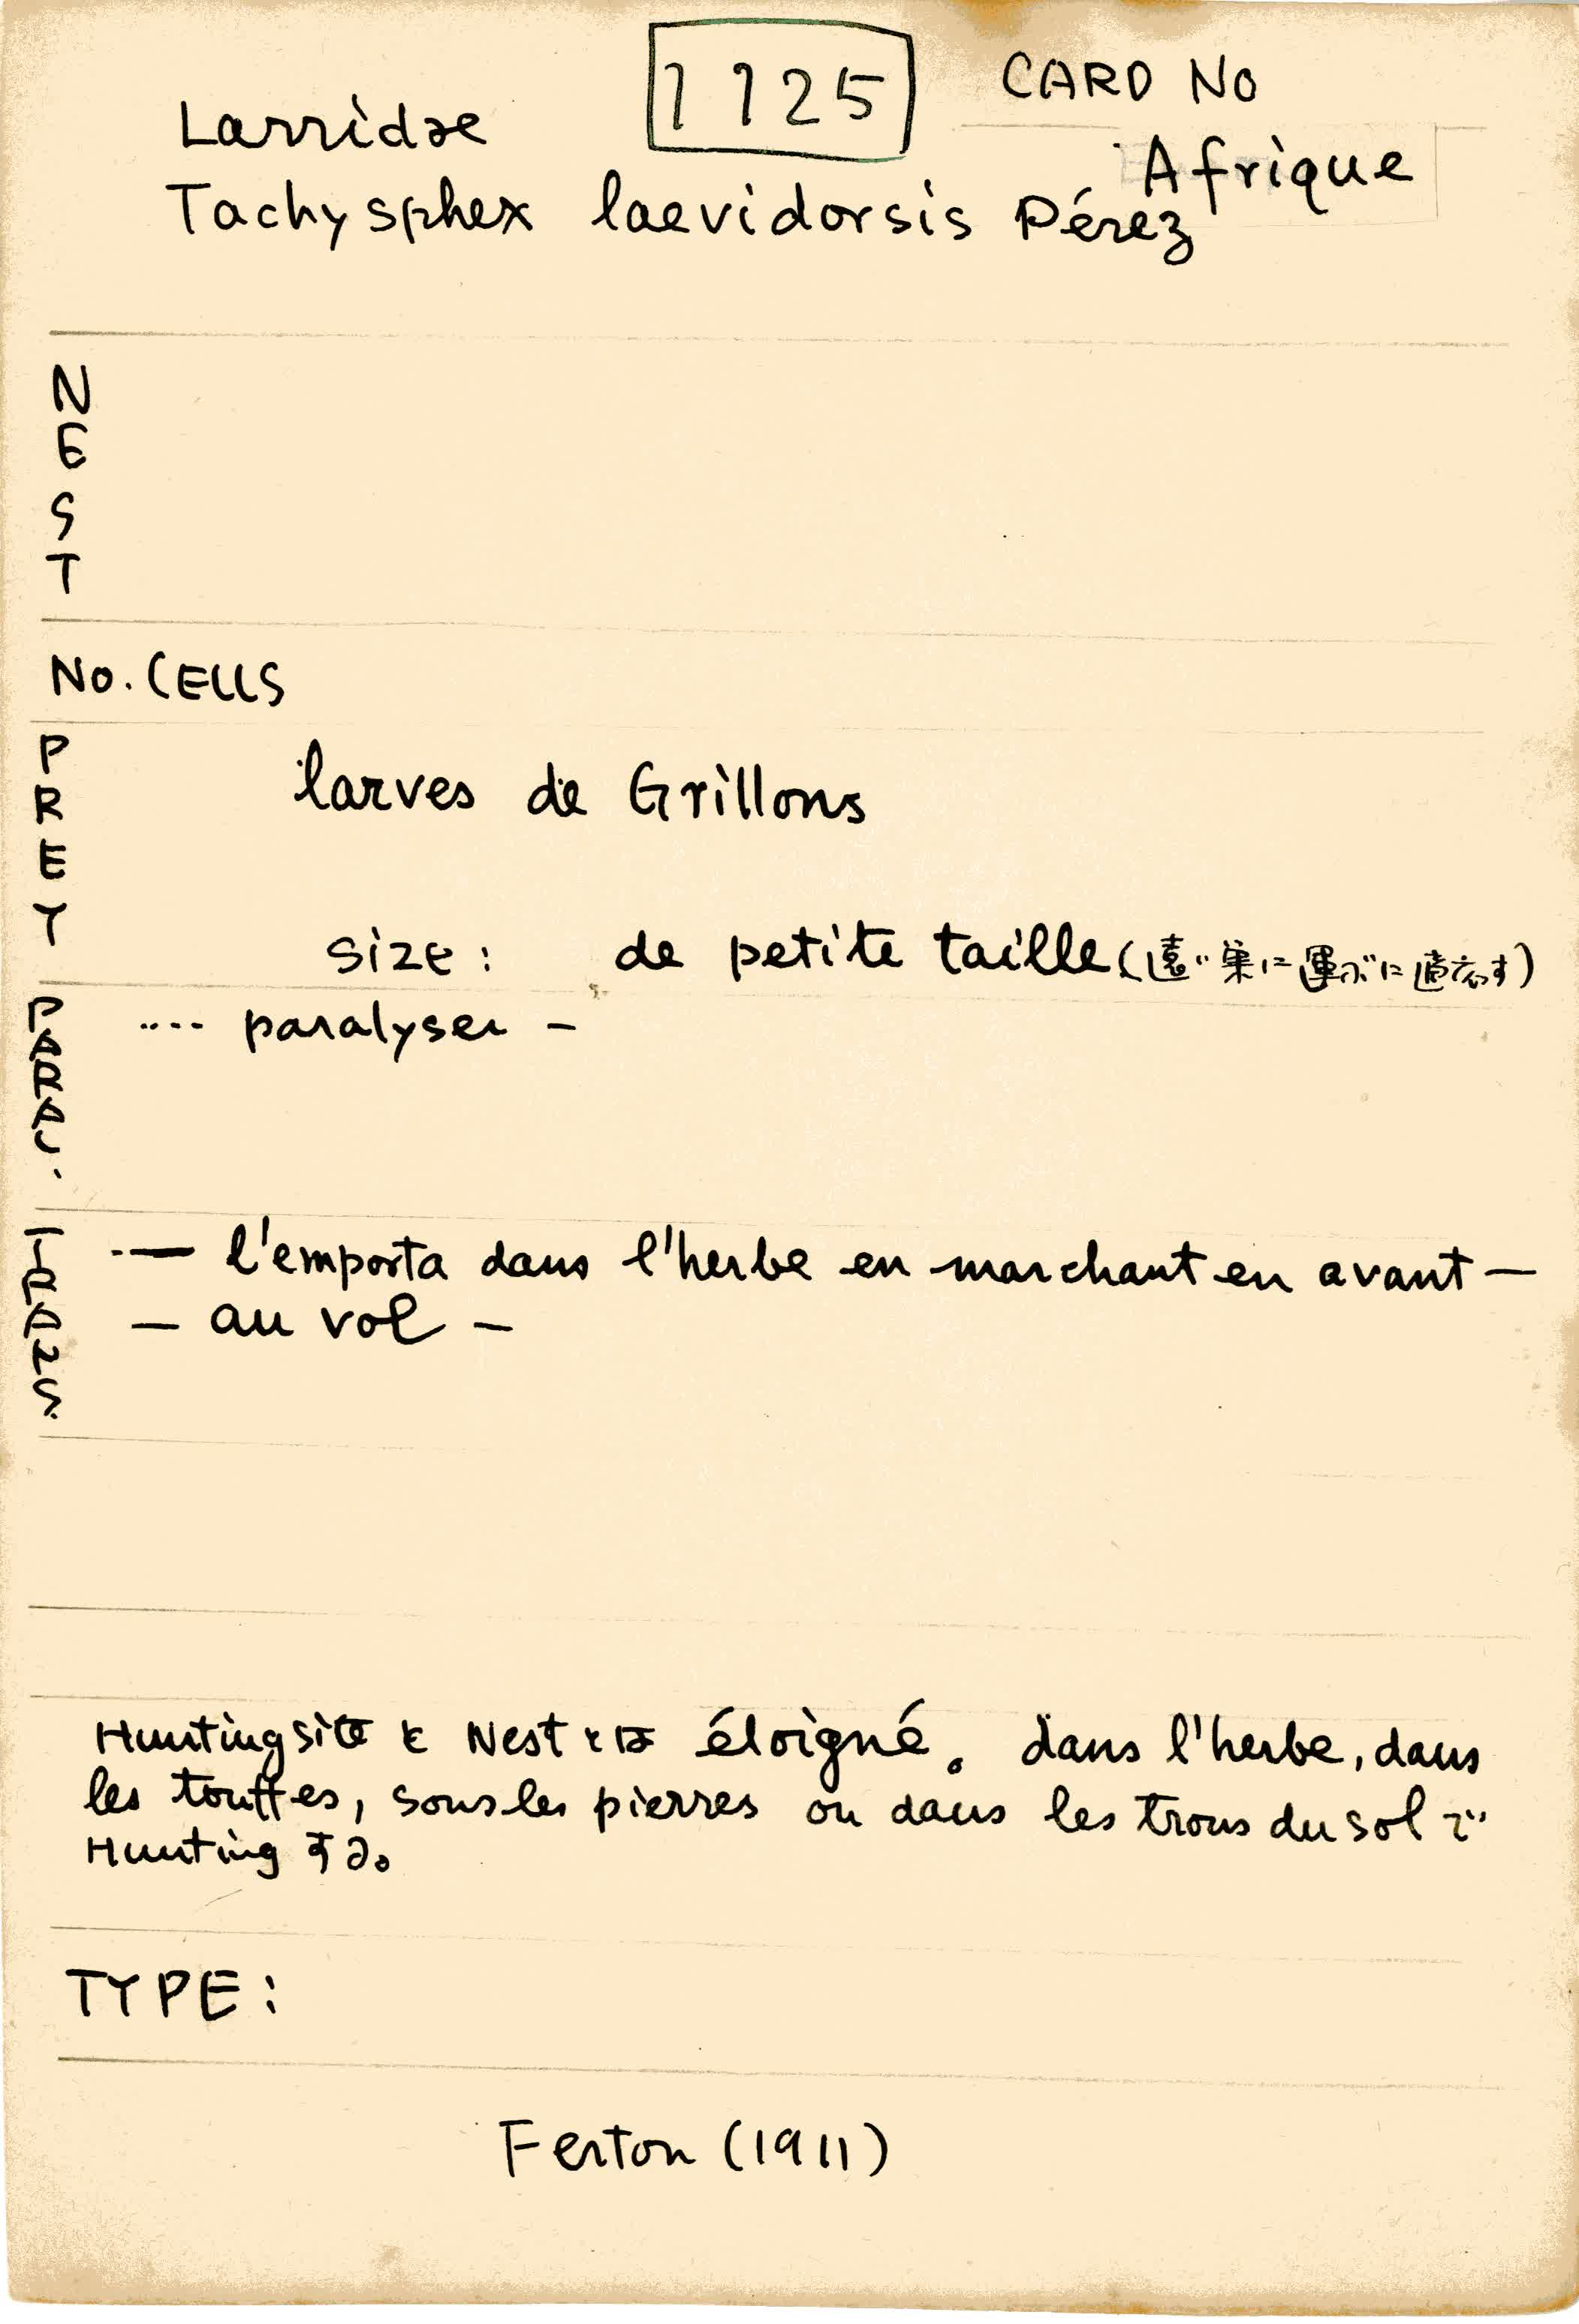 1125
CARD NO
Larridae
Afrique
Tachysphex laevidorsis Pérez
NEST
No. CELLS
PREY
larves de Grillons
size : de petite taille (遠い巣に運ぶに適応す)
PARAL.
.... paralyser —
TRANS.
.— l'emporta dans l'herbe en marchant en avant —
— au vol —
Hunting site と Nest とは éloigné。 dans l'herbe, dans
les touffes, sous les pierres ou dans les trous du sol で
Hunting する。
TYPE :
Ferton (1911)